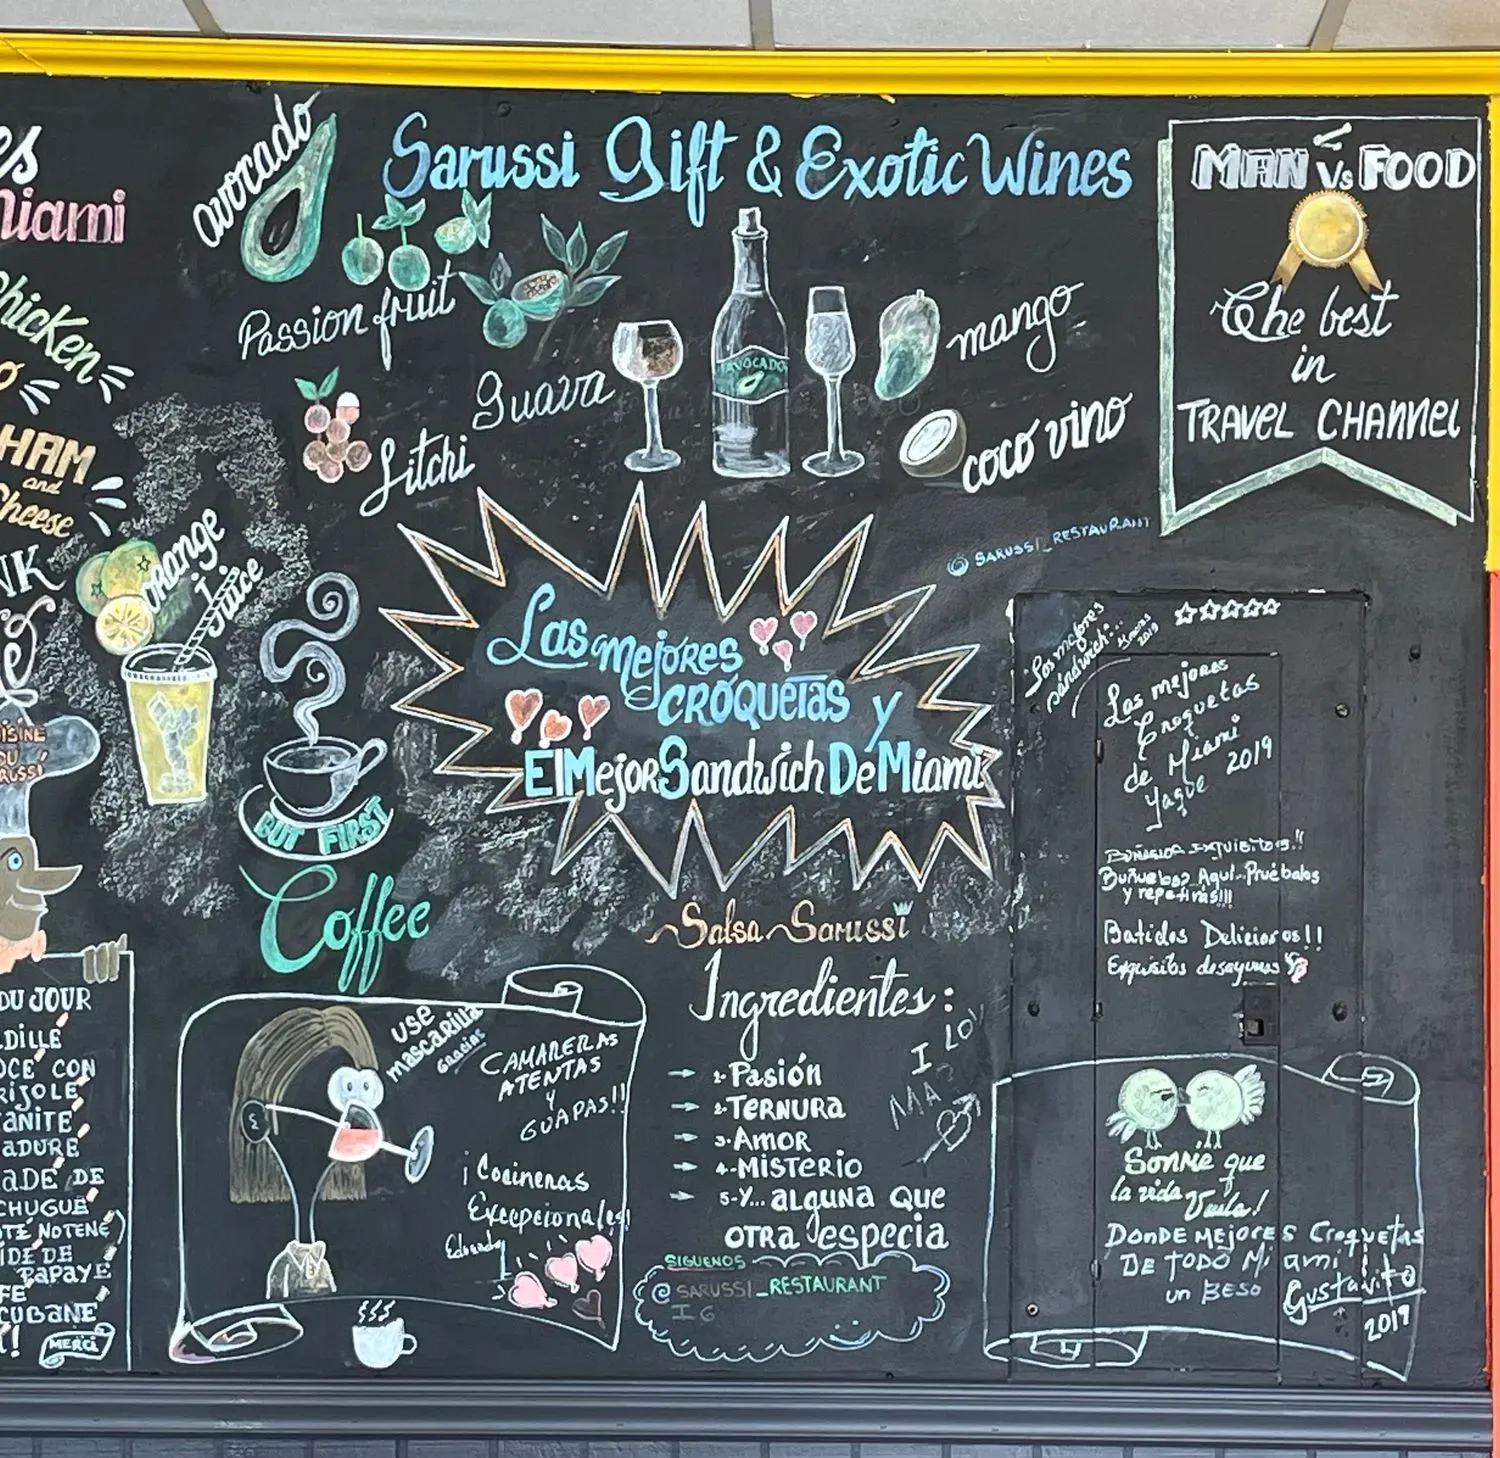 es
Miami
Chicken
HAM
and
Cheese
avocado
Sarussi Gift & Exotic Wines
Passion fruit
Guava
Litchi
AVOCADO
mango
coco vino
MAN Vs FOOD
The best
in
TRAVEL CHANNEL
@ SARUSSI_RESTAURANT
Orange
Juice
BUT FIRST
Coffee
Las mejores
CROQUETAS y
El Mejor Sandwich De Miami
Los mejores
sandwich...
2019
Las mejores
Croquetas
de Miami
Yaque 2019
Buñuelos Aquí.. Pruébalos
y repetirás!!!
Batidos Deliciosos!!
Exquisitos desayunos
CUISINE
DU
SARUSSI
DU JOUR
DILLE
OCE CON
RIJOLE
TANITE
ADURE
LADE DE
CHUGUE
TÉ NOTENE)
IDE DE
PAPAYE
FE
CUBANE
!
MERCI
USE
mascarilla
Gracias
CAMARERAS
ATENTAS
Y
GUAPAS!!
¡Cocineras
Excepcionales!
Eduardo
Salsa Sarussi
Ingredientes:
1-Pasión
2-TERNURA
3-Amor
4-MISTERIO
5-Y... alguna que
OTRA especia
I LOV
MA
SIGUENOS
@ SARUSSI_RESTAURANT
IG
Sonríe que
la vida Vuela!
DONDE MEJORES Croquetas
DE TODO Miami
un BESO
Gustavito
2019